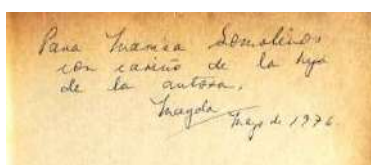 Para Marisa Somolinos
con cariño de la hija
de la autora,
Magda
Mayo de 1976